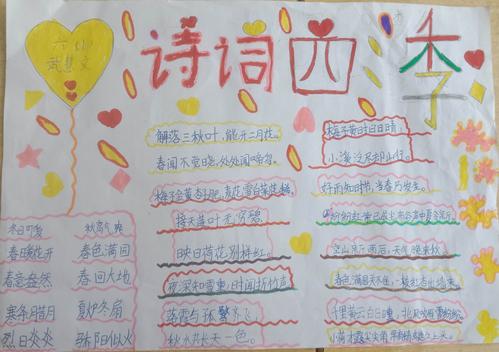 六(1)
武慧文
诗词四季
解落三秋叶，能开二月花。
春闺不觉晓，处处闻啼鸟。
梅子金黄杏子肥，麦花雪白菜花稀。
接天莲叶无穷碧
映日荷花别样红。
夜深知雪重，时闻折竹声。
落霞与孤鹜齐飞，
秋水共长天一色。
梅子黄时日日晴，
小溪泛尽却山行。
好雨知时节，当春乃发生。
空山新雨后，天气晚来秋。
春色满园关不住，
千里黄云白日曛，北风吹雁雪纷纷。
小荷才露尖尖角，早有蜻蜓立上头。
秋高气爽
春暖花开
春色满园
春意盎然
春回大地
寒冬腊月
夏炉冬扇
烈日炎炎
骄阳似火